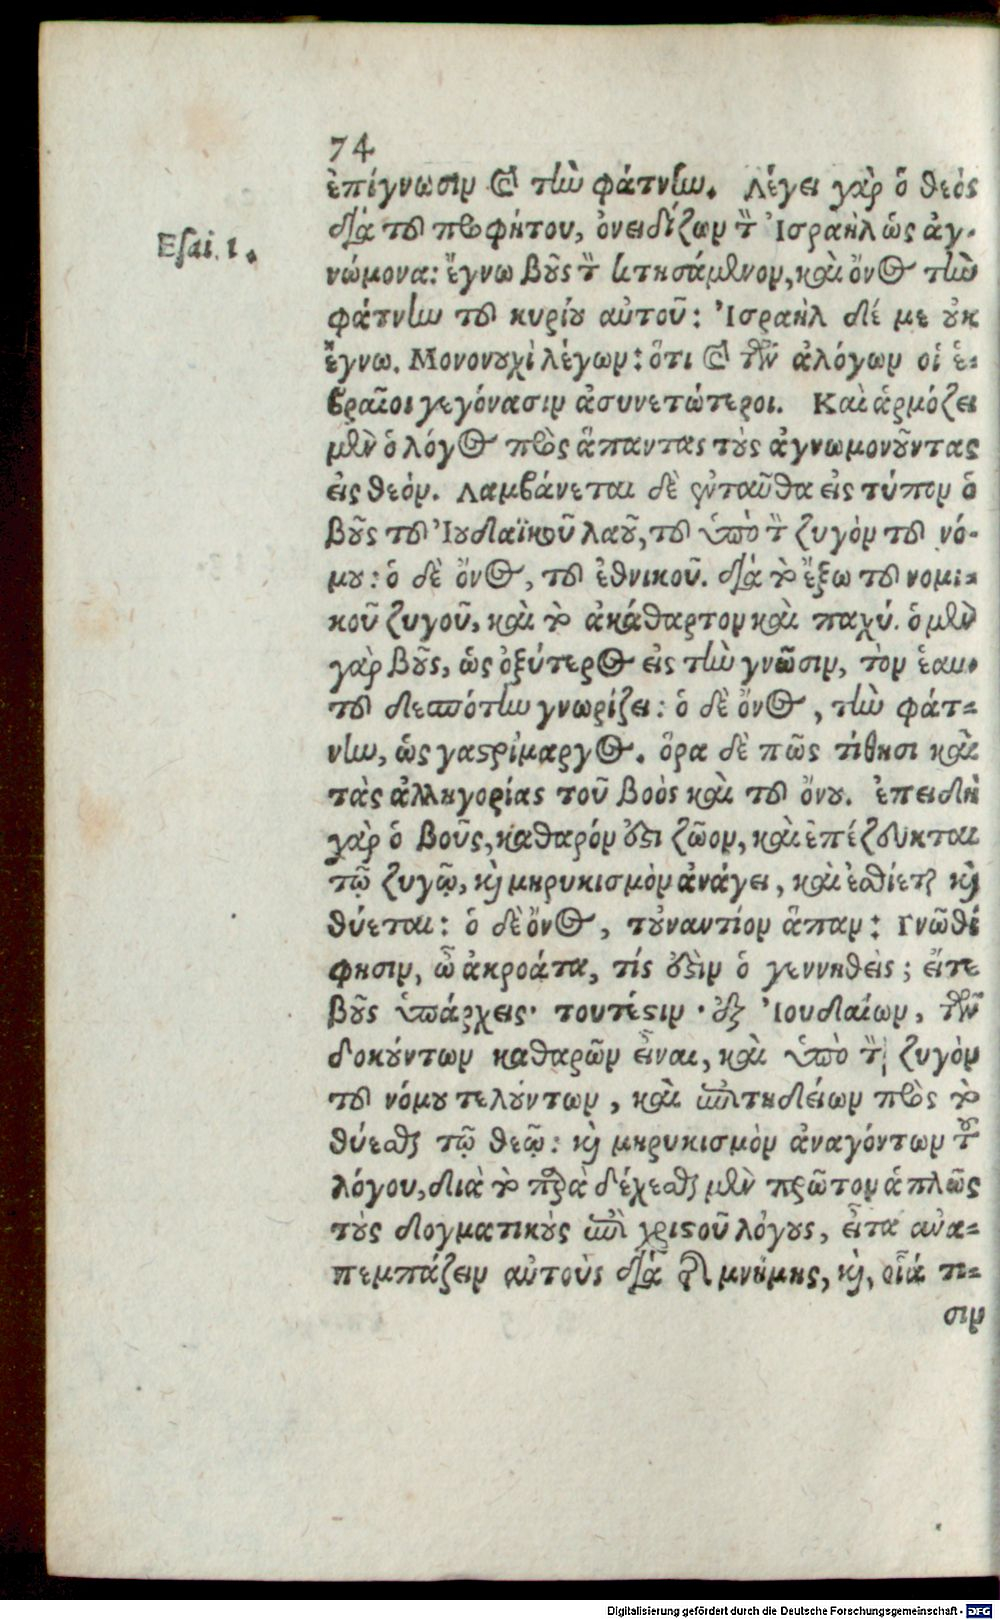 74
ἐπίγνωσιν καὶ τὴν φάτνην. Λέγει γὰρ ὁ θεὸς
διὰ τοῦ προφήτου, ὀνειδίζων τὸν Ἰσραὴλ ὡς ἀγ-
Esai. 1.
νώμονα: ἔγνω βοῦς τὸν κτησάμενον, καὶ ὄνος τὴν
φάτνην τοῦ κυρίου αὐτοῦ: Ἰσραὴλ δέ με οὐκ
ἔγνω. Μονονουχὶ λέγων: ὅτι καὶ τῶν ἀλόγων οἱ ἑ-
βραῖοι γεγόνασιν ἀσυνετώτεροι. Καὶ ἁρμόζει
μὲν ὁ λόγος πρὸς ἅπαντας τοὺς ἀγνωμονοῦντας
εἰς θεόν. Λαμβάνεται δὲ ἐνταῦθα εἰς τύπον ὁ
βοῦς τοῦ Ἰουδαϊκοῦ λαοῦ, τοῦ ὑπὸ τὸν ζυγὸν τοῦ νό-
μου: ὁ δὲ ὄνος, τοῦ ἐθνικοῦ. διὰ τὸ ἔξω τοῦ νομι-
κοῦ ζυγοῦ, καὶ τὸ ἀκάθαρτον καὶ παχύ. ὁ μὲν
γὰρ βοῦς, ὡς ὀξύτερος εἰς τὴν γνῶσιν, τὸν ἑαυ-
τοῦ δεσπότην γνωρίζει: ὁ δὲ ὄνος, τὴν φάτ-
νην, ὡς γαστρίμαργος. ὅρα δὲ πῶς τίθησι καὶ
τὰς ἀλληγορίας τοῦ βοὸς καὶ τοῦ ὄνου. ἐπειδὴ
γὰρ ὁ βοῦς, καθαρόν ἐστι ζῶον, καὶ ἐπέζευκται
τῷ ζυγῷ, καὶ μηρυκισμὸν ἀνάγει, καὶ ἐσθίεται καὶ
θύεται: ὁ δὲ ὄνος, τοὐναντίον ἅπαν: Γνῶθί
φησιν, ὦ ἀκροάτα, τίς ἐστὶν ὁ γεννηθεὶς; εἴτε
βοῦς ὑπάρχεις· τουτέστιν· ἐξ Ἰουδαίων, τῶν
δοκούντων καθαρῶν εἶναι, καὶ ὑπὸ τὸν ζυγὸν
τοῦ νόμου τελούντων, καὶ ἐπιτηδείων πρὸς τὸ
θύεσθαι τῷ θεῷ: καὶ μηρυκισμὸν ἀναγόντων τοῦ
λόγου, διὰ τὸ παραδέχεσθαι μὲν πρῶτον ἁπλῶς
τοὺς δογματικοὺς ἐπὶ χριστοῦ λόγους, εἶτα ἀνα-
πεμπάζειν αὐτοὺς διὰ τῆς μνήμης, καὶ, οἷά τι-
σιν
Digitalisierung gefördert durch die Deutsche Forschungsgemeinschaft - DFG